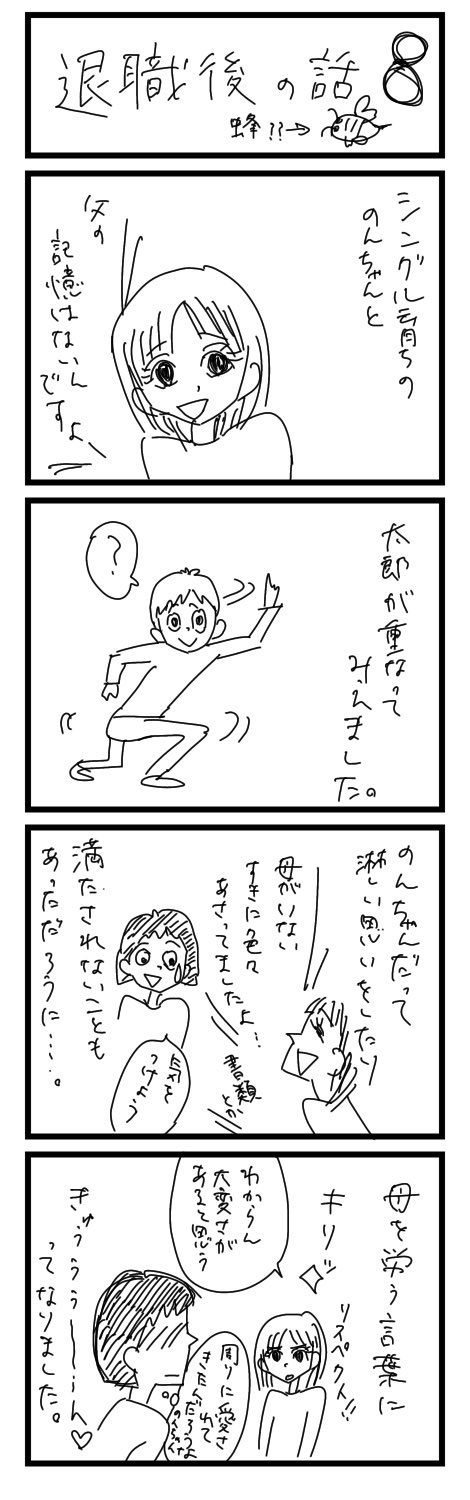 退職後の話 8
蜂??→
シングル育ちの
のんちゃんと
父の
記憶はないん
ですよ、
太郎が重なって
みえました。
?
のんちゃんだって
淋しい思いをしたり
母がいない
すきに色々
あさってましたよ…
書類
とか
気を
つけよう
満たされないことも
あっただろうに…。
母を労う言葉に
リスペクト!!
キリッ
わからん
大変さが
あると思う
周りに愛さ
れて
きたんだろうよ
のんちゃん
ぎゅうぅぅーーーん♡
ってなりました。